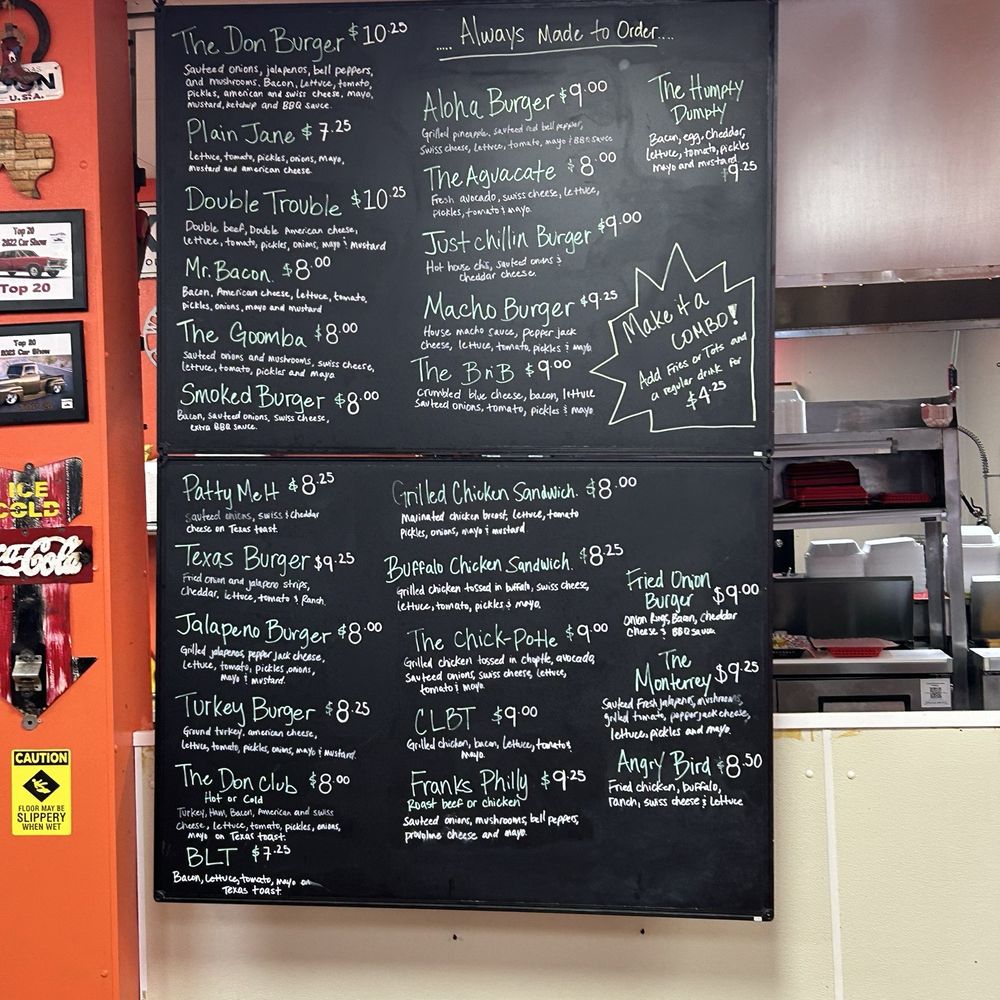 The Don Burger $10.25
Sauteed onions, jalapenos, bell peppers,
and mushrooms. Bacon, Lettuce, tomato,
pickles, american and swiss cheese, mayo,
mustard, ketchup and BBQ sauce.
Plain Jane $7.25
Lettuce, tomato, pickles, onions, mayo,
mustard and american cheese.
Double Trouble $10.25
Double beef, Double American cheese,
lettuce, tomato, pickles, onions, mayo & mustard
Mr. Bacon $8.00
Bacon, American cheese, lettuce, tomato,
pickles, onions, mayo and mustard
The Goomba $8.00
Sauteed onions and mushrooms, swiss cheese,
lettuce, tomato, pickles and mayo
Smoked Burger $8.00
Bacon, sauteed onions, swiss cheese,
extra BBQ sauce.
..... Always Made to Order....
Aloha Burger $9.00
Grilled pineapple, sauteed red bell pepper,
Swiss cheese, lettuce, tomato, mayo & BBQ sauce
The Aguacate $8.00
Fresh avocado, swiss cheese, lettuce,
pickles, tomato & mayo.
Just chillin Burger $9.00
Hot house chis, sauteed onions &
cheddar cheese.
Macho Burger $9.25
House macho sauce, pepper jack
cheese, lettuce, tomato, pickles & mayo
The BriB $9.00
Crumbled blue cheese, bacon, lettuce
Sauteed onions, tomato, pickles & mayo
The Humpty
Dumpty
Bacon, egg, cheddar,
lettuce, tomato, pickles
mayo and mustard
$9.25
Make it a
COMBO!
Add Fries or Tots and
a regular drink for
$4.25
Patty Melt $8.25
sauteed onions, swiss & cheddar
cheese on Texas toast.
Texas Burger $9.25
Fried onion and jalapeno strips,
cheddar, lettuce, tomato & Ranch.
Jalapeno Burger $8.00
Grilled jalapenos, pepper jack cheese,
Lettuce, tomato, pickles, onions,
mayo & mustard.
Turkey Burger $8.25
Ground turkey, american cheese,
lettuce, tomato, pickles, onions, mayo & mustard.
The Don Club $8.00
Hot or Cold
Turkey, Ham, Bacon, American and swiss
cheese, lettuce, tomato, pickles, onions,
mayo on Texas toast.
BLT $7.25
Bacon, Lettuce, tomato, mayo on
Texas toast.
Grilled Chicken Sandwich. $8.00
Marinated chicken breast, lettuce, tomato
pickles, onions, mayo & mustard
Buffalo Chicken Sandwich. $8.25
Grilled chicken tossed in buffalo, swiss cheese,
lettuce, tomato, pickles & mayo,
The Chick-Potle $9.00
Grilled chicken tossed in chiptle, avocado,
Sauteed onions, swiss cheese, lettuce,
tomato & mayo.
CLBT $9.00
Grilled chicken, bacon, lettuce, tomato &
mayo.
Franks Philly $9.25
Roast beef or chicken
Sauteed onions, mushrooms, bell peppers,
provolone cheese and mayo.
Fried Onion
Burger $9.00
Onion Rings, Bacon, cheddar
cheese & BBQ sauce
The
Monterrey $9.25
Sauteed Fresh jalapenos, mushrooms,
grilled tomato, pepper jack cheese,
lettuce, pickles and mayo.
Angry Bird $8.50
Fried chicken, buffalo,
ranch, swiss cheese & lettuce
U.S.A.
Top 20
2022 Car Show
Top 20
Top 20
2023 Car Show
ICE
COLD
Coca-Cola
CAUTION
FLOOR MAY BE
SLIPPERY
WHEN WET